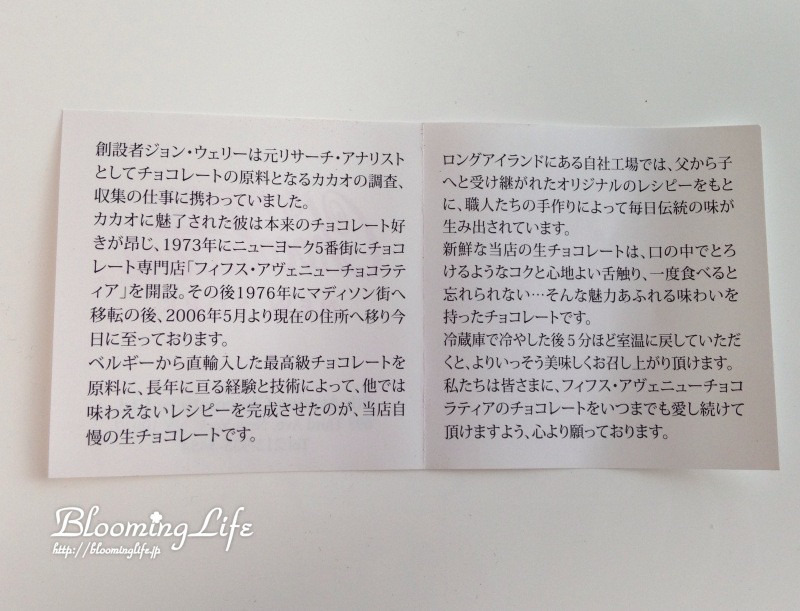 創設者ジョン・ウェリーは元リサーチ・アナリスト
としてチョコレートの原料となるカカオの調査、
収集の仕事に携わっていました。
カカオに魅了された彼は本来のチョコレート好
きが昂じ、1973年にニューヨーク5番街にチョコ
レート専門店「フィフス・アヴェニューチョコラテ
ィア」を開設。その後1976年にマディソン街へ
移転の後、2006年5月より現在の住所へ移り今
日に至っております。
ベルギーから直輸入した最高級チョコレートを
原料に、長年に亘る経験と技術によって、他では
味わえないレシピーを完成させたのが、当店自
慢の生チョコレートです。
ロングアイランドにある自社工場では、父から子
へと受け継がれたオリジナルのレシピーをもと
に、職人たちの手作りによって毎日伝統の味が
生み出されています。
新鮮な当店の生チョコレートは、口の中でとろ
けるようなコクと心地よい舌触り、一度食べると
忘れられない…そんな魅力あふれる味わいを
持ったチョコレートです。
冷蔵庫で冷やした後5分ほど室温に戻していただ
くと、よりいっそう美味しくお召し上がり頂けます。
私たちは皆さまに、フィフス・アヴェニューチョコ
ラティアのチョコレートをいつまでも愛し続けて
頂けますよう、心より願っております。
BloomingLife
http://bloominglife.jp